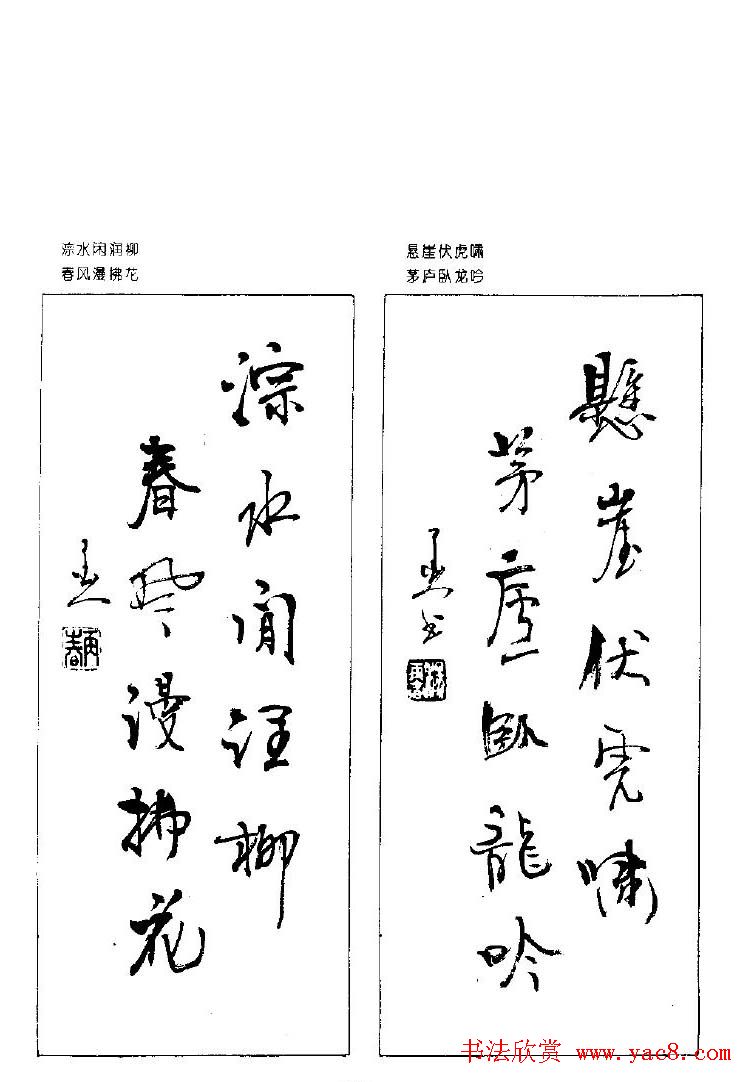 淙水闲润柳
春风漫拂花
悬崖伏虎啸
茅庐卧龙吟
懸崖伏虎嘯
茅廬臥龍吟
淙水閒潤柳
春風漫拂花
书法欣赏 www.yac8.com